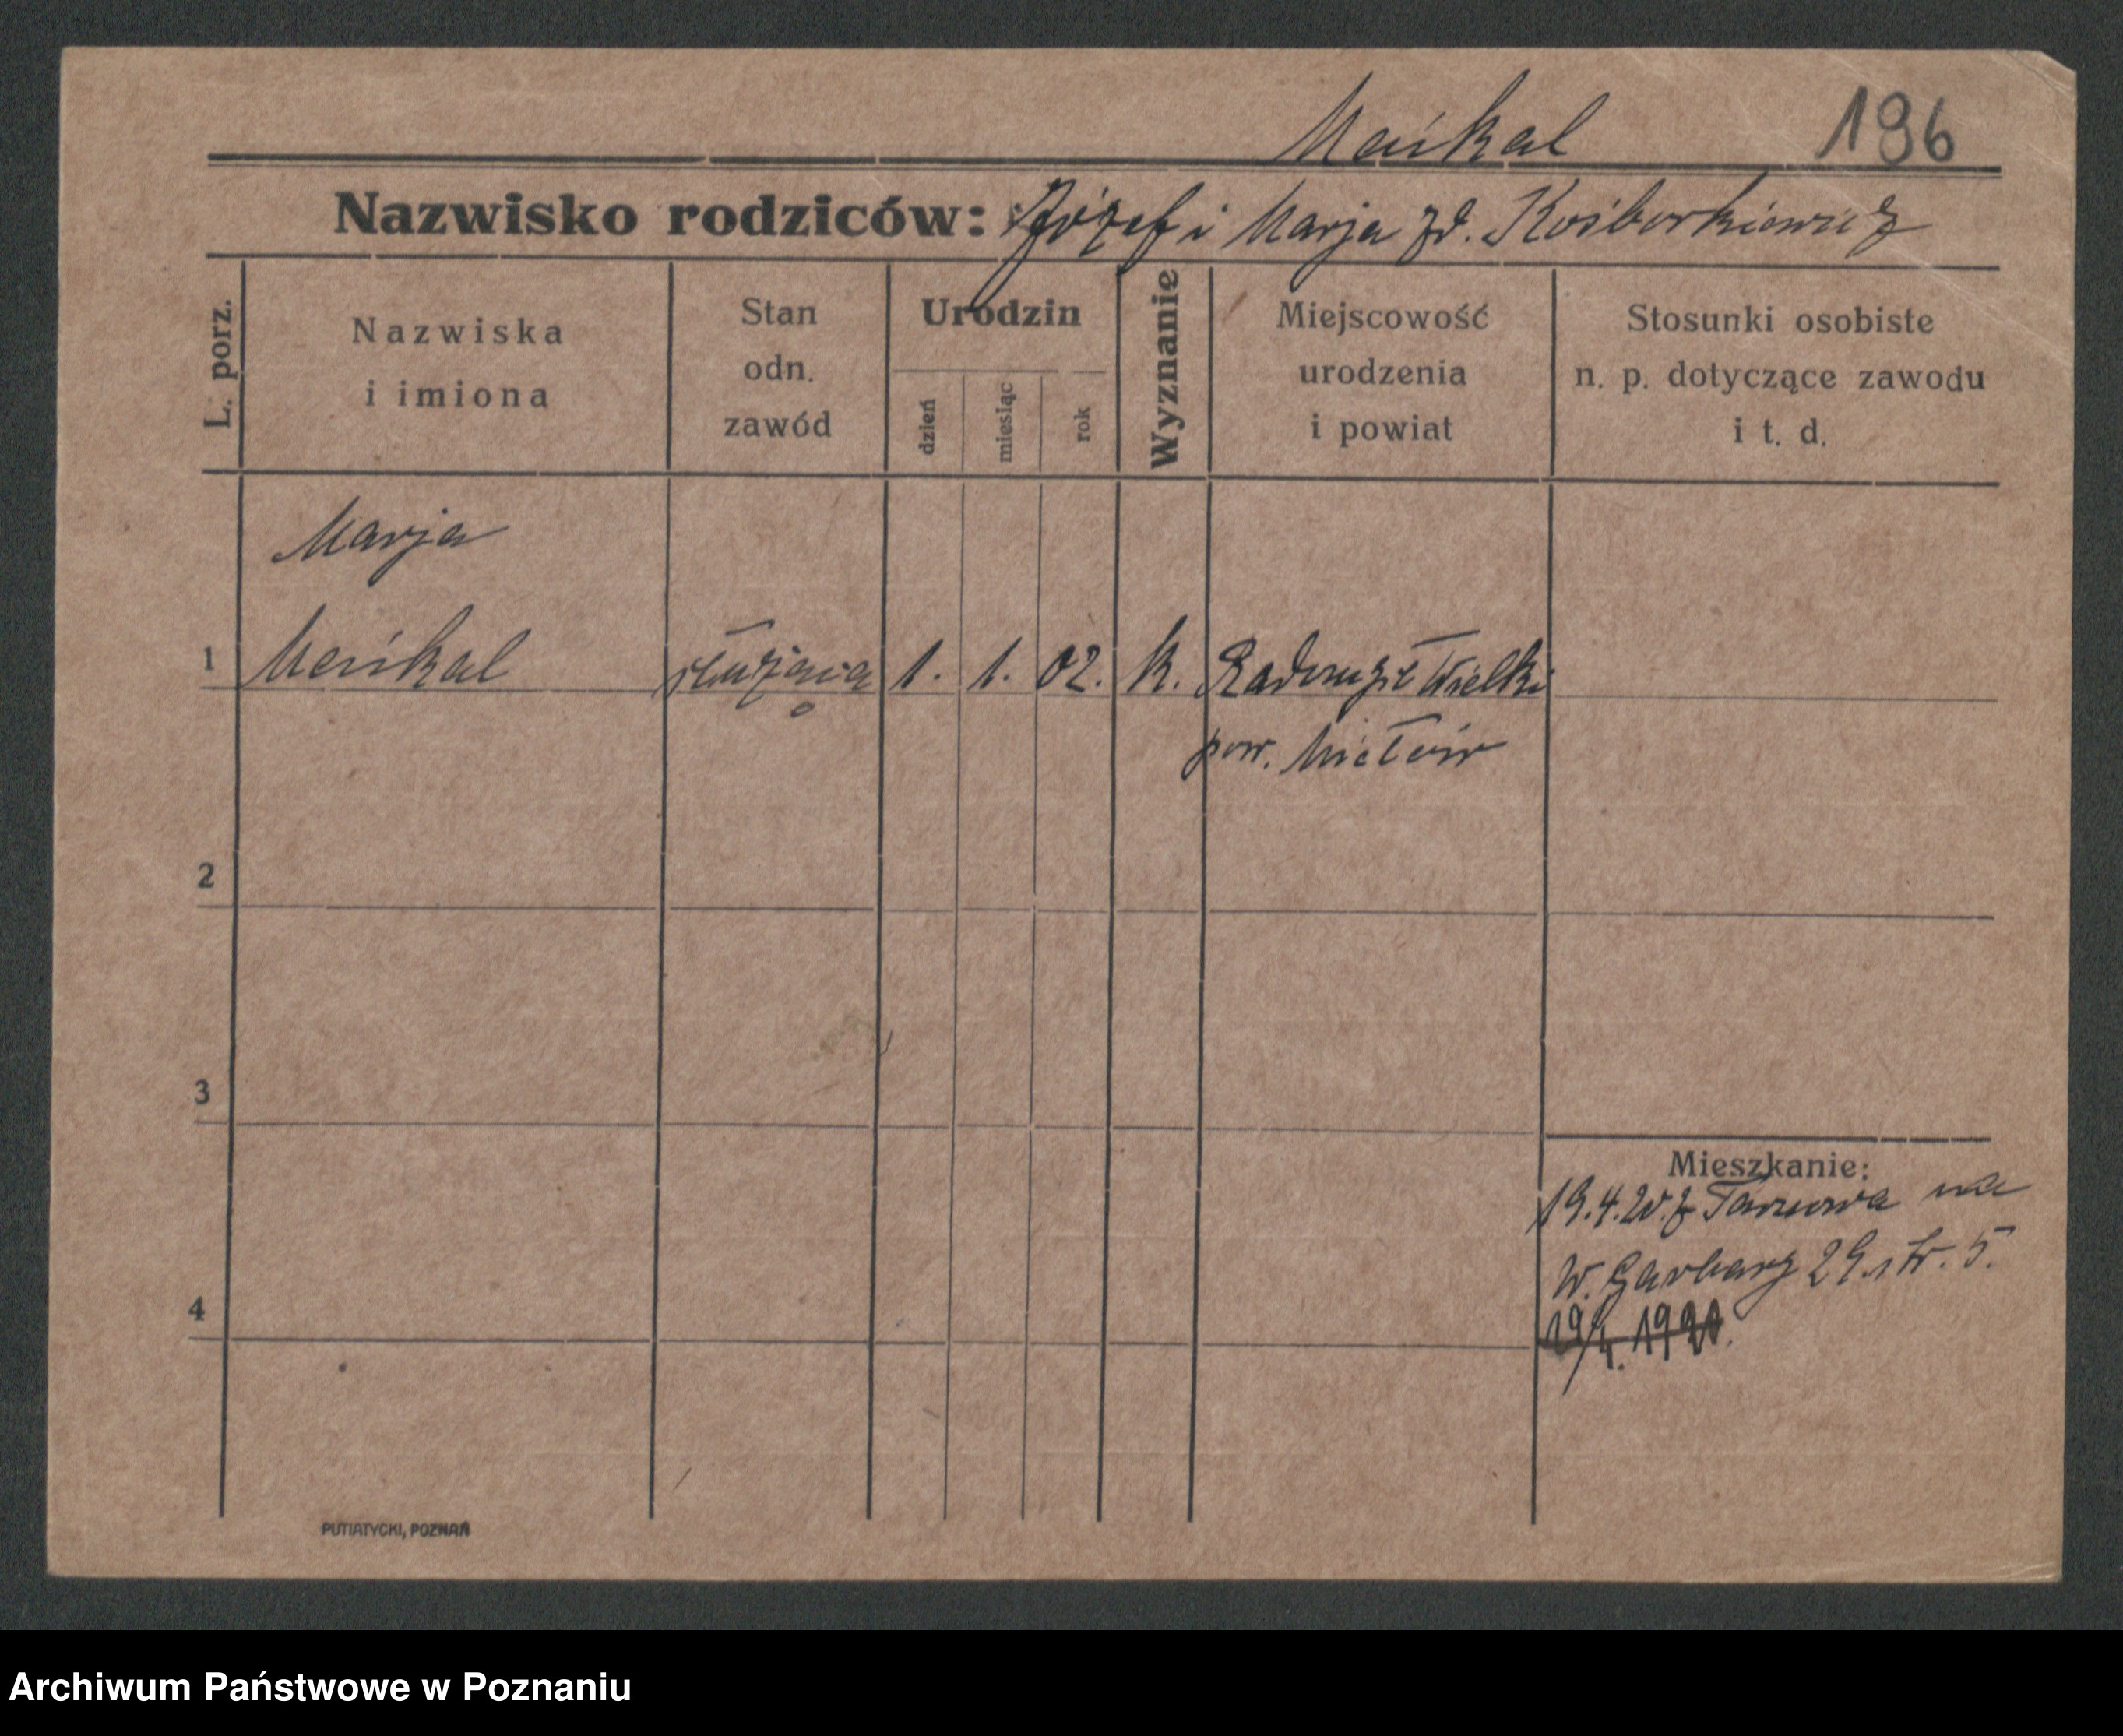 Mańkal 196
Nazwisko rodziców: Józef i Marja zd.
L. porz.
Nazwiska
i imiona
Stan
odn.
zawód
Urodzin
dzień
miesiąc
rok
Wyznanie
Miejscowość
urodzenia
i powiat
Stosunki osobiste
n. p. dotyczące zawodu
i t. d.
Marja
1 Mańkal służąca 1. 1. 02. k. Wielki
pow.
2
3
Mieszkanie:
19.4.20. z Tarnowa na
W. Garbary 29. tr. 5.
4
PUTIATYCKI, POZNAŃ
Archiwum Państwowe w Poznaniu